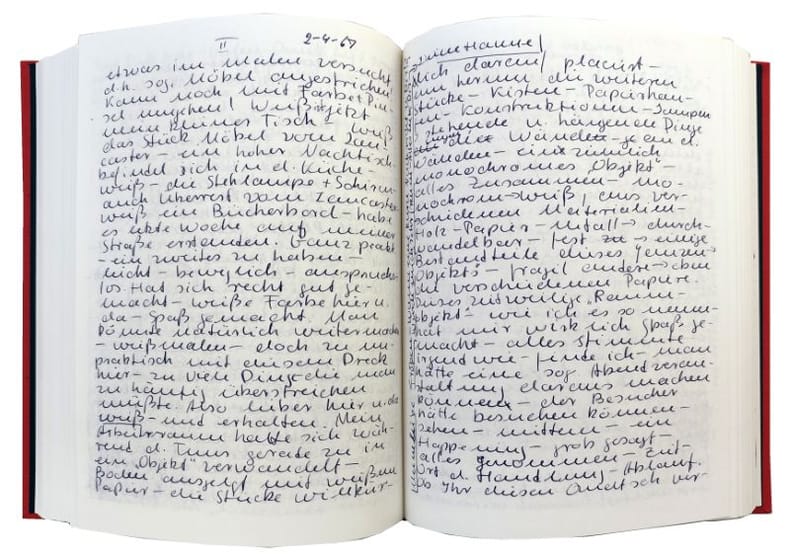 II 2-4-67
etwas im Malen versucht
d.h. sog. Möbel angestrichen
Kann noch mit Farbe + Pin-
sel umgehen! Weiß ist jetzt
mein kleiner Tisch – weiß
das Stück Möbel vom Lan-
caster – ein hoher Nachttisch
befindet sich in d. Küche –
weiß – die Stehlampe + Schirm –
auch Überrest vom Lancaster
weiß ein Bücherbord – habe
es letzte Woche auf meiner
Straße erstanden. Ganz prakt
– ein zweites zu haben –
leicht – beweglich – anspruchs-
los. Hat sich recht gut ge-
macht – weiße Farbe hier u.
da – Spaß gemacht. Man
könnte natürlich weitermachen
– weißmalen – doch zu un-
praktisch mit diesem Dreck
hier – zu viele Dinge die man
zu häufig überstreichen
müßte. Also lieber hier u. da
weiß – und erhalten. Mein
Arbeitsraum hatte sich wäh-
rend d. Tuns gerade zu in
ein „Objekt" verwandelt –
Boden ausgelegt mit weißem
Papier – die Stücke willkür-
mich darauf placiert –
um herum die weiteren
Stücke – Kisten – Papierhau-
fen – Konstruktionen – Lampen
stehende u. hängende Dinge
die Wände – je an d.
Wänden – ein ziemlich
monochromes „Objekt" –
alles zusammen – mo-
nochrom – weiß, aus ver-
schiedenen Materialien –
Holz – Papier – Metall → durch-
wandelbar – fest zu → einige
Bestandteile dieses „ – 
Objekts" – fragil andere → eben
die verschiedenen Papiere.
Dieses zeitweilige „Raum-
objekt" – wie ich es so nenne –
hat mir wirklich Spaß ge-
macht – alles stimmte
irgendwie – finde ich – man
hätte eine sog. Abendveran-
staltung daraus machen
können – der Besucher
hätte besuchen können –
sehen – mitten – ein
Happening – grob gesagt –
alles genommen – Zeit –
Ort d. Handlung – Ablauf.
Ob Ihr diesen Quatsch ver-